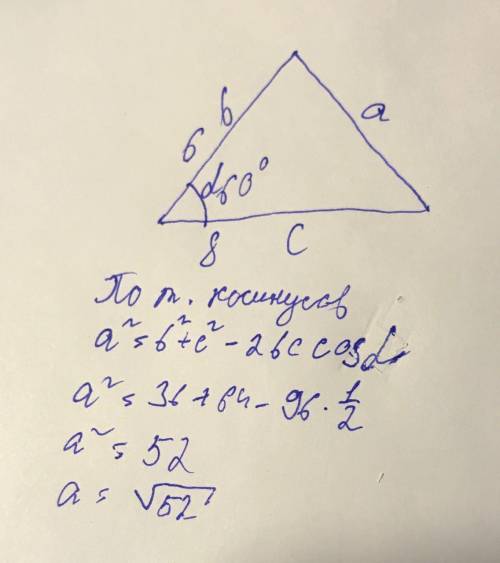 6 b
a
α 60°
8 c
По т. косинусов
a² = b² + c² - 2bc cos α
a² = 36 + 64 - 96 · 1/2
a² = 52
a = √52